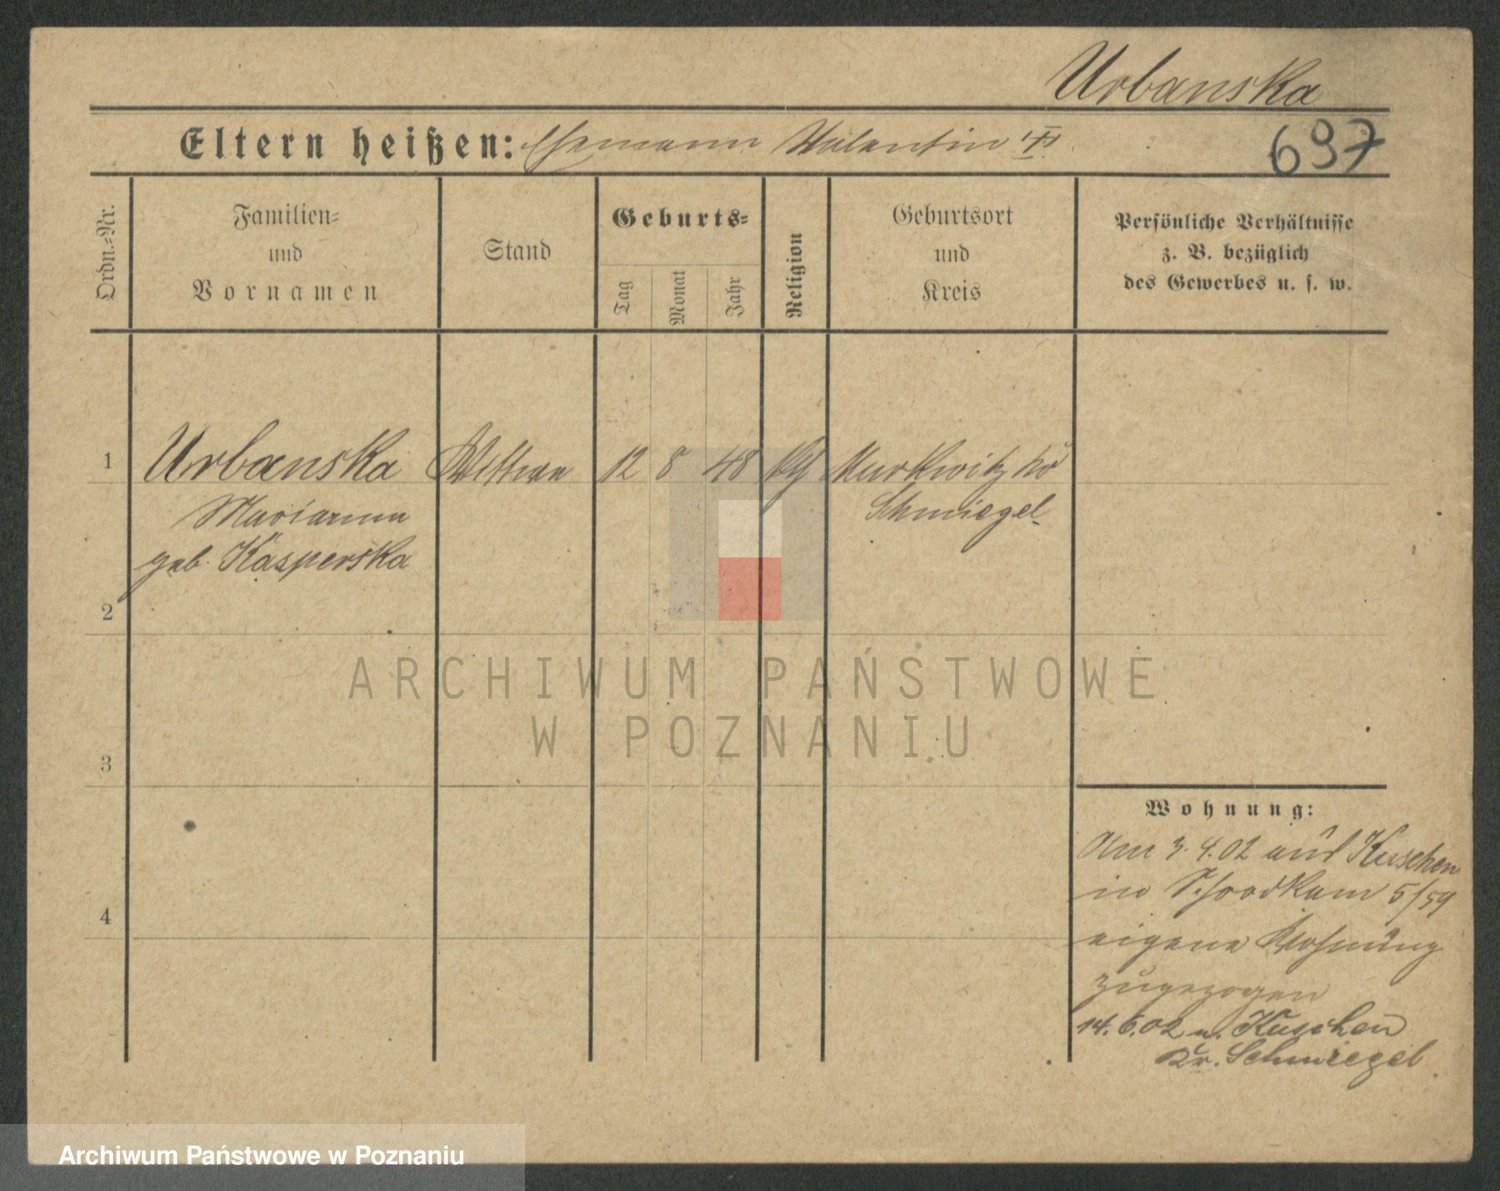 Urbanska
Eltern heißen: Ehemann Valentin
697
Ordn.=Nr.
Familien=
und
Vornamen
Stand
Geburts=
Tag
Monat
Jahr
Religion
Geburtsort
und
Kreis
Persönliche Verhältnisse
z. B. bezüglich
des Gewerbes u. s. w.
1
Urbanska
Marianna
geb. Kasperska
Wittwe
12 8 48
Murkwitz Kr
Schmiegel
2
3
4
Wohnung:
Am 3.4.02 aus Kuschen
in 5/59
eigene Wohnung
zugezogen
14.6.02 n. Kuschen
Kr. Schmiegel
ARCHIWUM PAŃSTWOWE
W POZNANIU
Archiwum Państwowe w Poznaniu